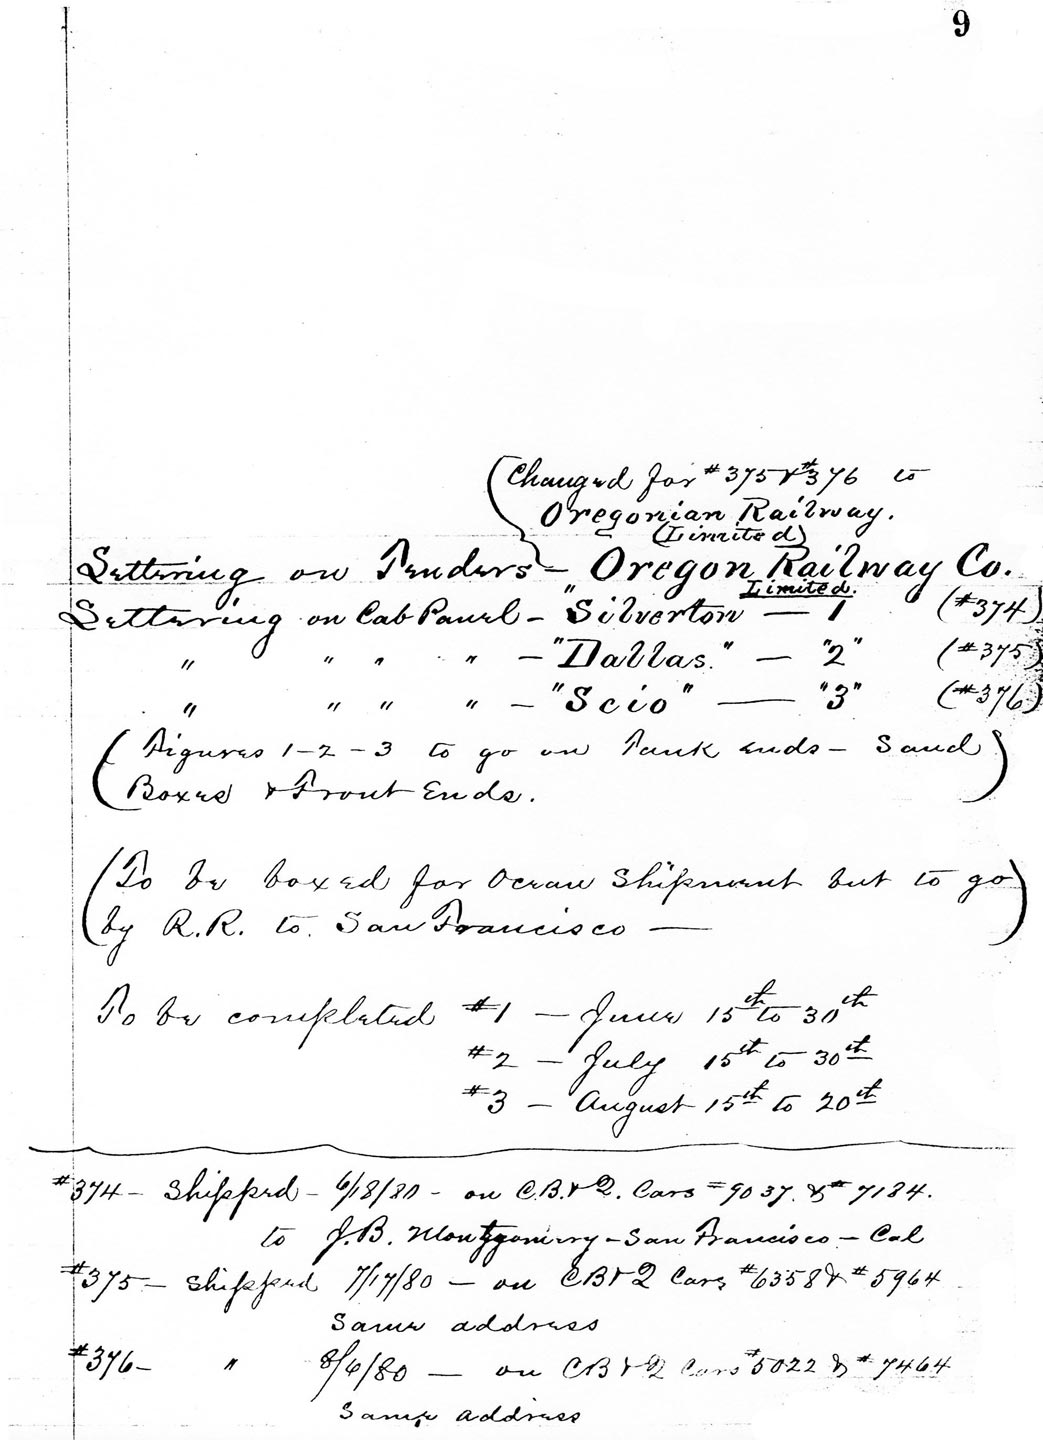 9
(Changed for #375 & #376 to
Oregonian Railway.
(Limited)
Lettering on Tenders – Oregon Railway Co.
Limited.
Lettering on Cab Panel – "Silverton — 1 (#374)
" " " " – "Dallas." — "2" (#375)
" " " " – "Scio" — "3" (#376)
(Figures 1–2–3 to go on Tank ends – Sand
Boxes & Front Ends.)
(To be boxed for Ocean Shipment but to go
by R.R. to San Francisco —)
To be completed #1 – June 15th to 30th
#2 – July 15th to 30th
#3 – August 15th to 20th
#374 – Shipped – 6/18/80 – on C.B.& Q. Cars #9037. & #7184.
to J.B. Montgomery – San Francisco – Cal
#375 – Shipped 7/17/80 – on CB & Q Cars #6358 & #5964
Same address
#376 – " 8/6/80 — on CB & Q Cars #5022 & #7464
Same address